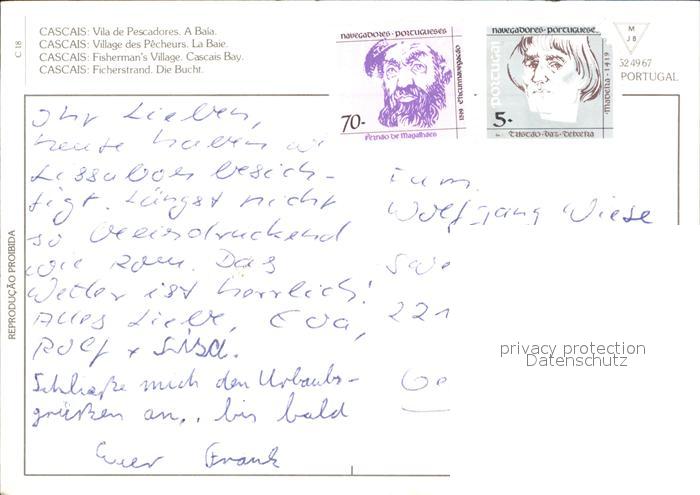 CASCAIS: Vila de Pescadores. A Baía.
CASCAIS: Village des Pêcheurs. La Baie.
CASCAIS: Fisherman's Village. Cascais Bay.
CASCAIS: Ficherstrand. Die Bucht.
C 18
REPRODUÇÃO PROIBIDA
NAVEGADORES · PORTUGUESES
70-
FERNÃO DE MAGALHÃES
1519 CIRCUNNAVEGAÇÃO
NAVEGADORES · PORTUGUESE
PORTUGAL
5-
TRISTÃO · VAZ · TEIXEIRA
MADEIRA · 1419
M
J B
52 49 67
PORTUGAL
Ihr Lieben,
heute haben wi
Lissabon besich-
tigt. Längst nicht
so beeindruckend
wie Rom. Das
Wetter ist herrlich!
Alles Liebe, Eva,
Rolf + Lisa.
Schließe mich den Urlaubs-
grüßen an,. bis bald
Euer Frank
Fam.
Wolfgang Wiese
Swe
221
Ge
privacy protection
Datenschutz